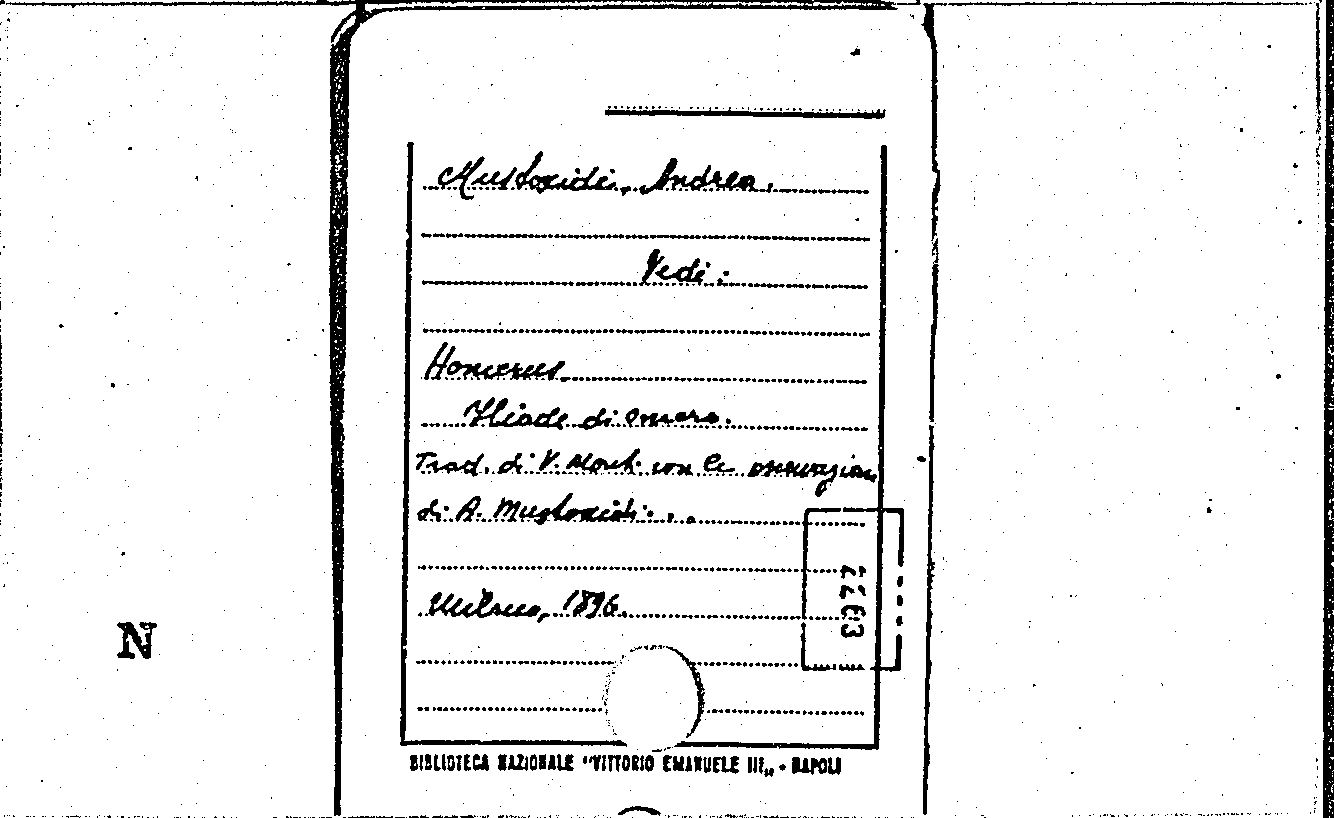 Mustoxidi, Andrea.
Vedi:
Homerus
Iliade di Omero.
Trad. di V. Monti con le osservazioni
di A. Mustoxidi...
Milano, 1896.
N
BIBLIOTECA NAZIONALE "VITTORIO EMANUELE III„ - NAPOLI